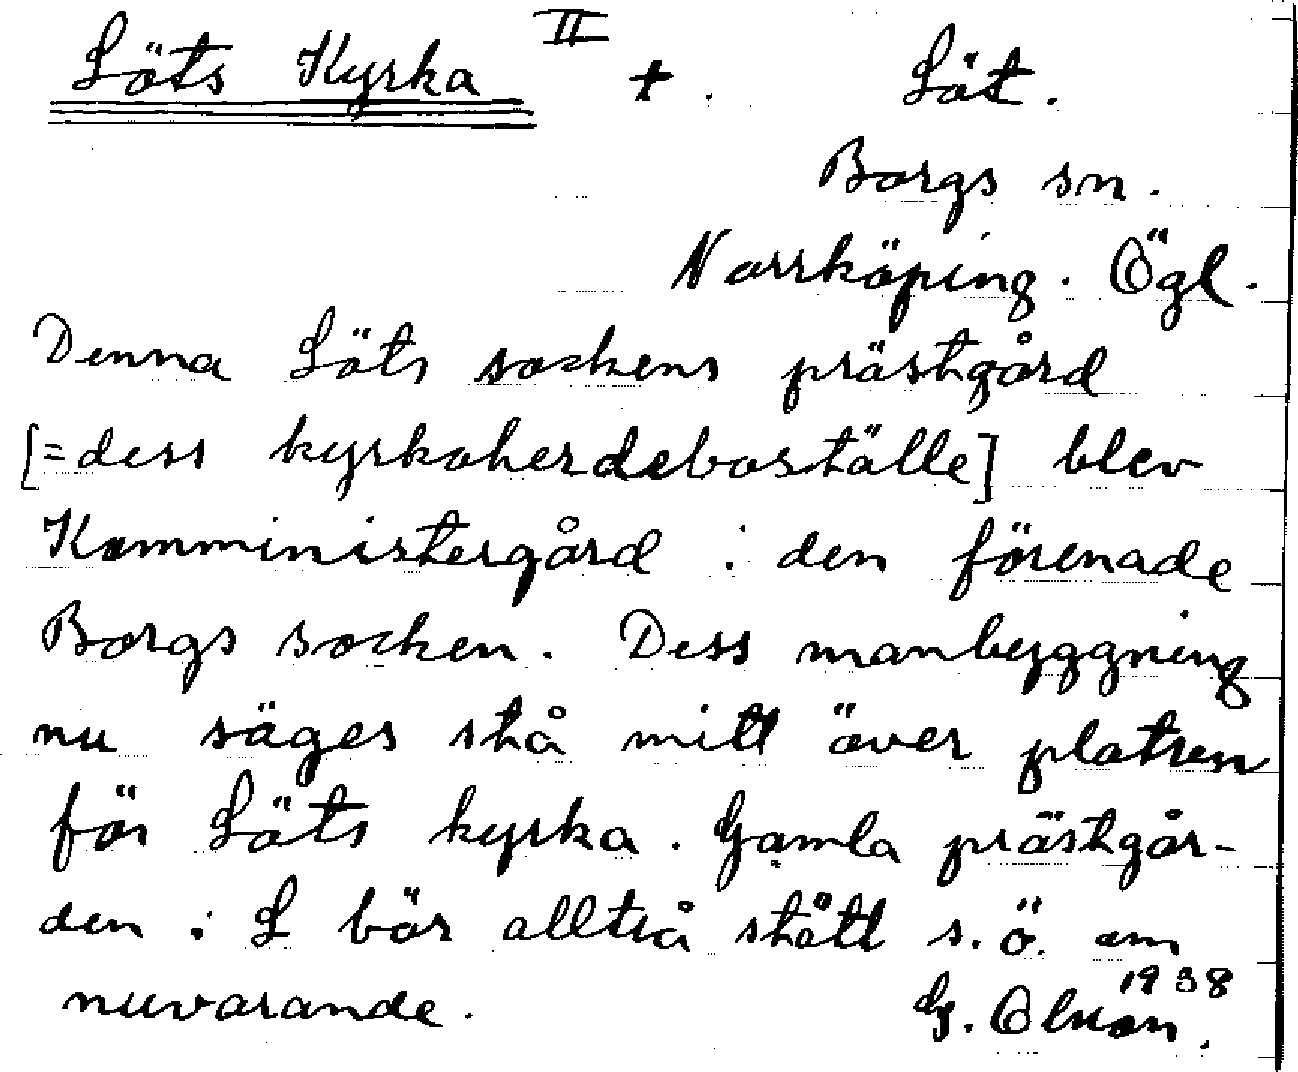 Löts Kyrka II + . Löt.
Borgs sn.
Norrköping. Ögl.
Denna Löts sockens prästgård
[= dess kyrkoherdeboställe] blev
Komministergård i den förenade
Borgs socken. Dess manbyggning
nu säges stå mitt över platsen
för Löts kyrka. Gamla prästgår-
den i L bör alltså stått s.ö. om
nuvarande. G. Olsson. 1938